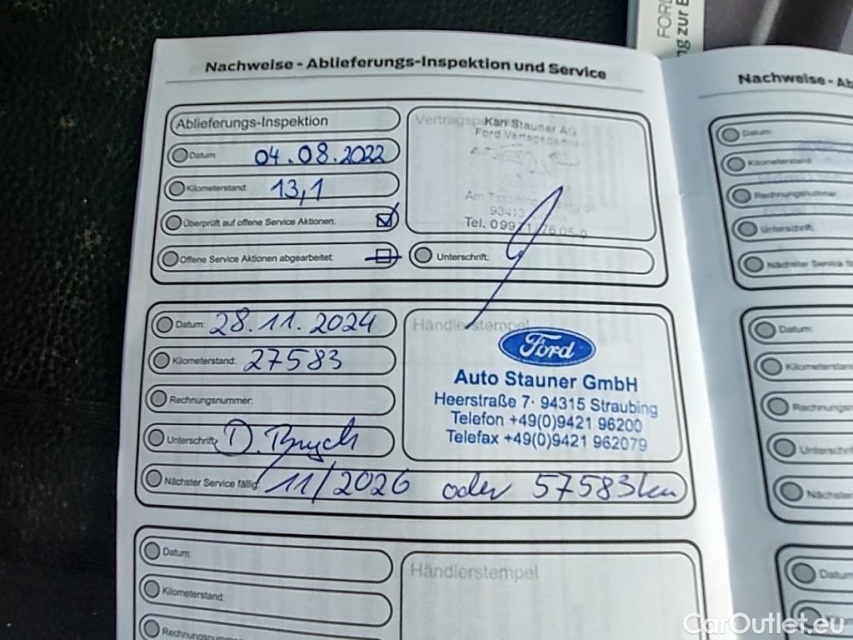 FORD
ng zur E
Nachweise - Ablieferungs-Inspektion und Service
Ablieferungs-Inspektion
Datum: 04.08.2022
Kilometerstand: 13,1
Überprüft auf offene Service Aktionen:
Offene Service Aktionen abgearbeitet:
Karl Stauner AG
Ford Vertragspartner
93413
Tel. 099
Unterschrift:
Datum: 28.11.2024
Kilometerstand: 27583
Rechnungsnummer:
Unterschrift:
Nächster Service fällig: 11/2026 oder 57583km
Händlerstempel
Ford
Auto Stauner GmbH
Heerstraße 7 · 94315 Straubing
Telefon +49(0)9421 96200
Telefax +49(0)9421 962079
Datum:
Kilometerstand:
Rechnungsnummer
Händlerstempel
Nachweise - Ab
Datum:
Kilometerstand:
Rechnungsnummer
Unterschrift:
Nächster Service fä
Datum:
Kilometerstan
Rechnungs
Unterschrif
Nächster
Datum
CarOutlet.eu